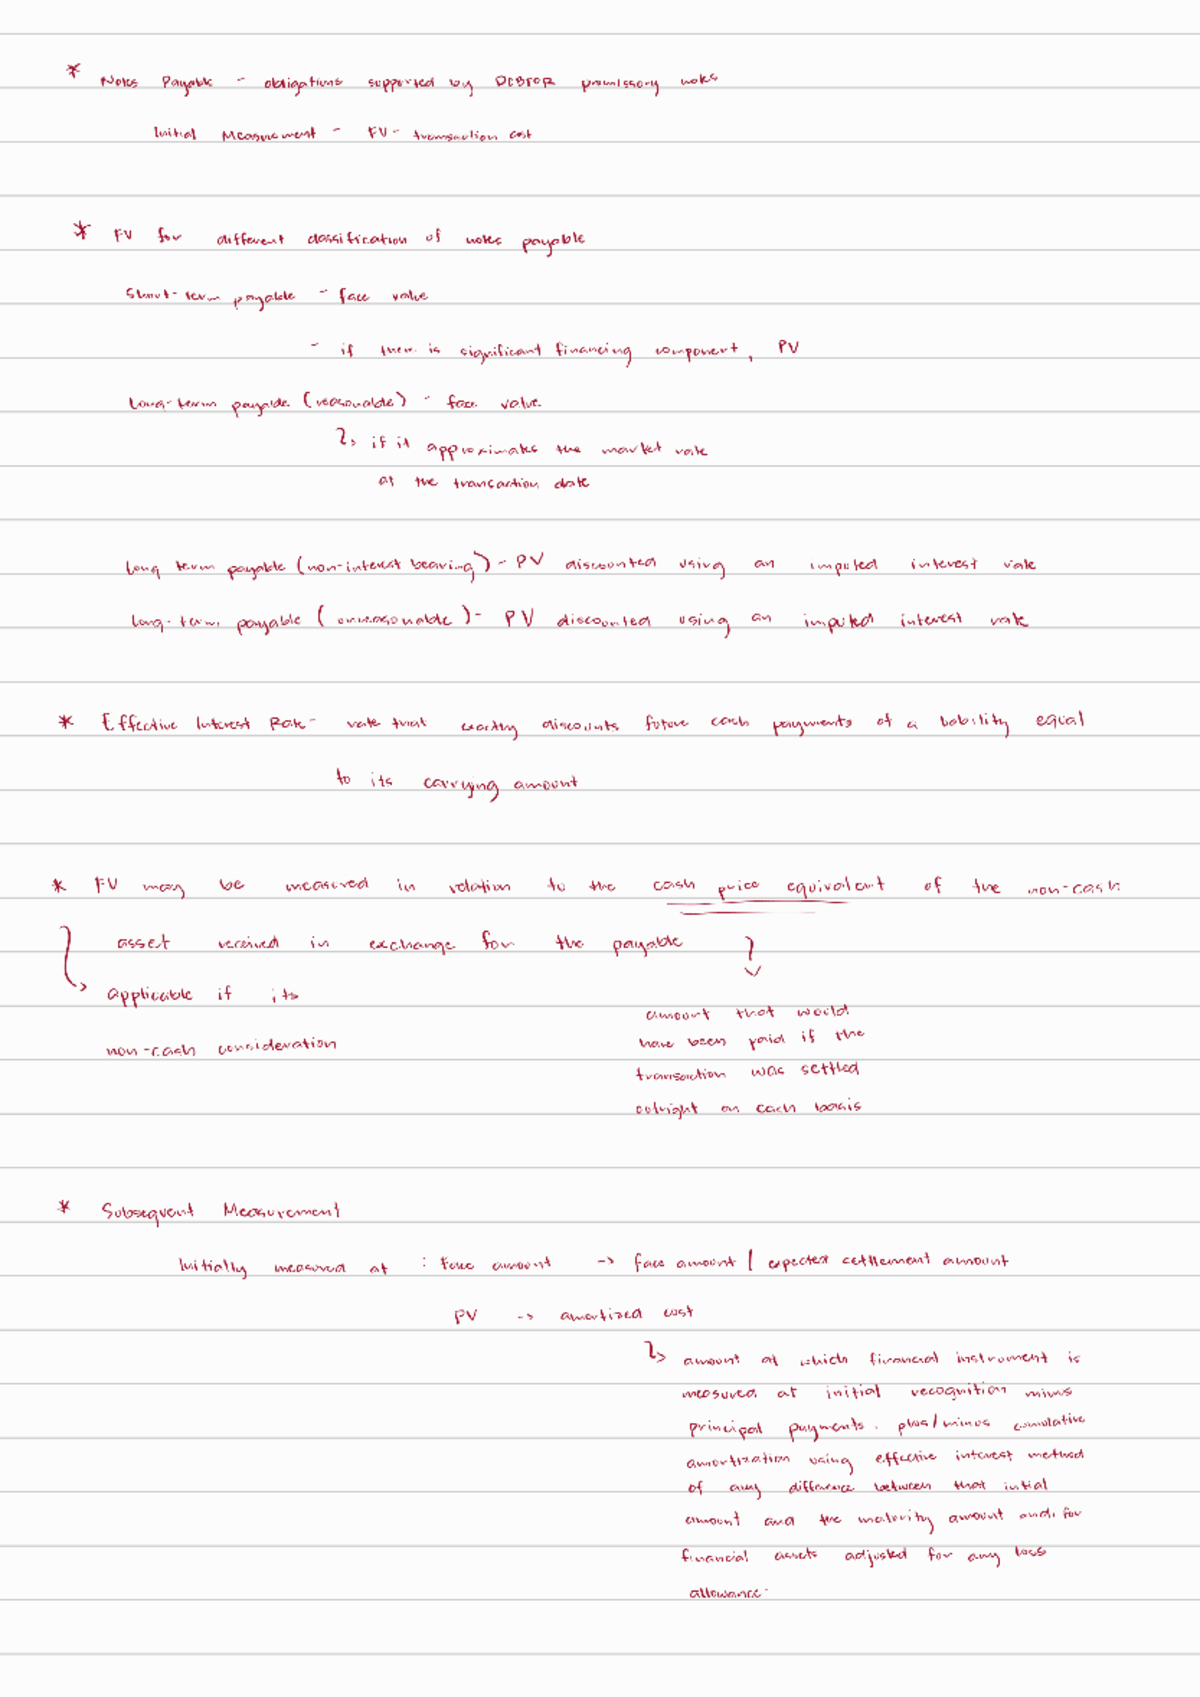 * Notes Payable - obligations supported by DEBTOR promissory notes
Initial Measurement - FV - transaction cost
* FV for different classification of notes payable
Short-term payable - face value
- if there is significant financing component, PV
Long-term payable (reasonable) - face value
↳ if it approximates the market rate
at the transaction date
Long term payable (non-interest bearing) - PV discounted using an imputed interest rate
Long-term payable (unreasonable) - PV discounted using an imputed interest rate
* Effective Interest Rate - rate that exactly discounts future cash payments of a liability equal
to its carrying amount
* FV may be measured in relation to the cash price equivalent of the non-cash
asset received in exchange for the payable
↳ applicable if its
non-cash consideration
↓ amount that would
have been paid if the
transaction was settled
outright on cash basis
* Subsequent Measurement
Initially measured at : Face amount -> face amount / expected settlement amount
PV -> amortized cost
↳ amount at which financial instrument is
measured at initial recognition minus
principal payments. plus/minus cumulative
amortization using effective interest method
of any difference between that initial
amount and the maturity amount and, for
financial assets adjusted for any loss
allowance.